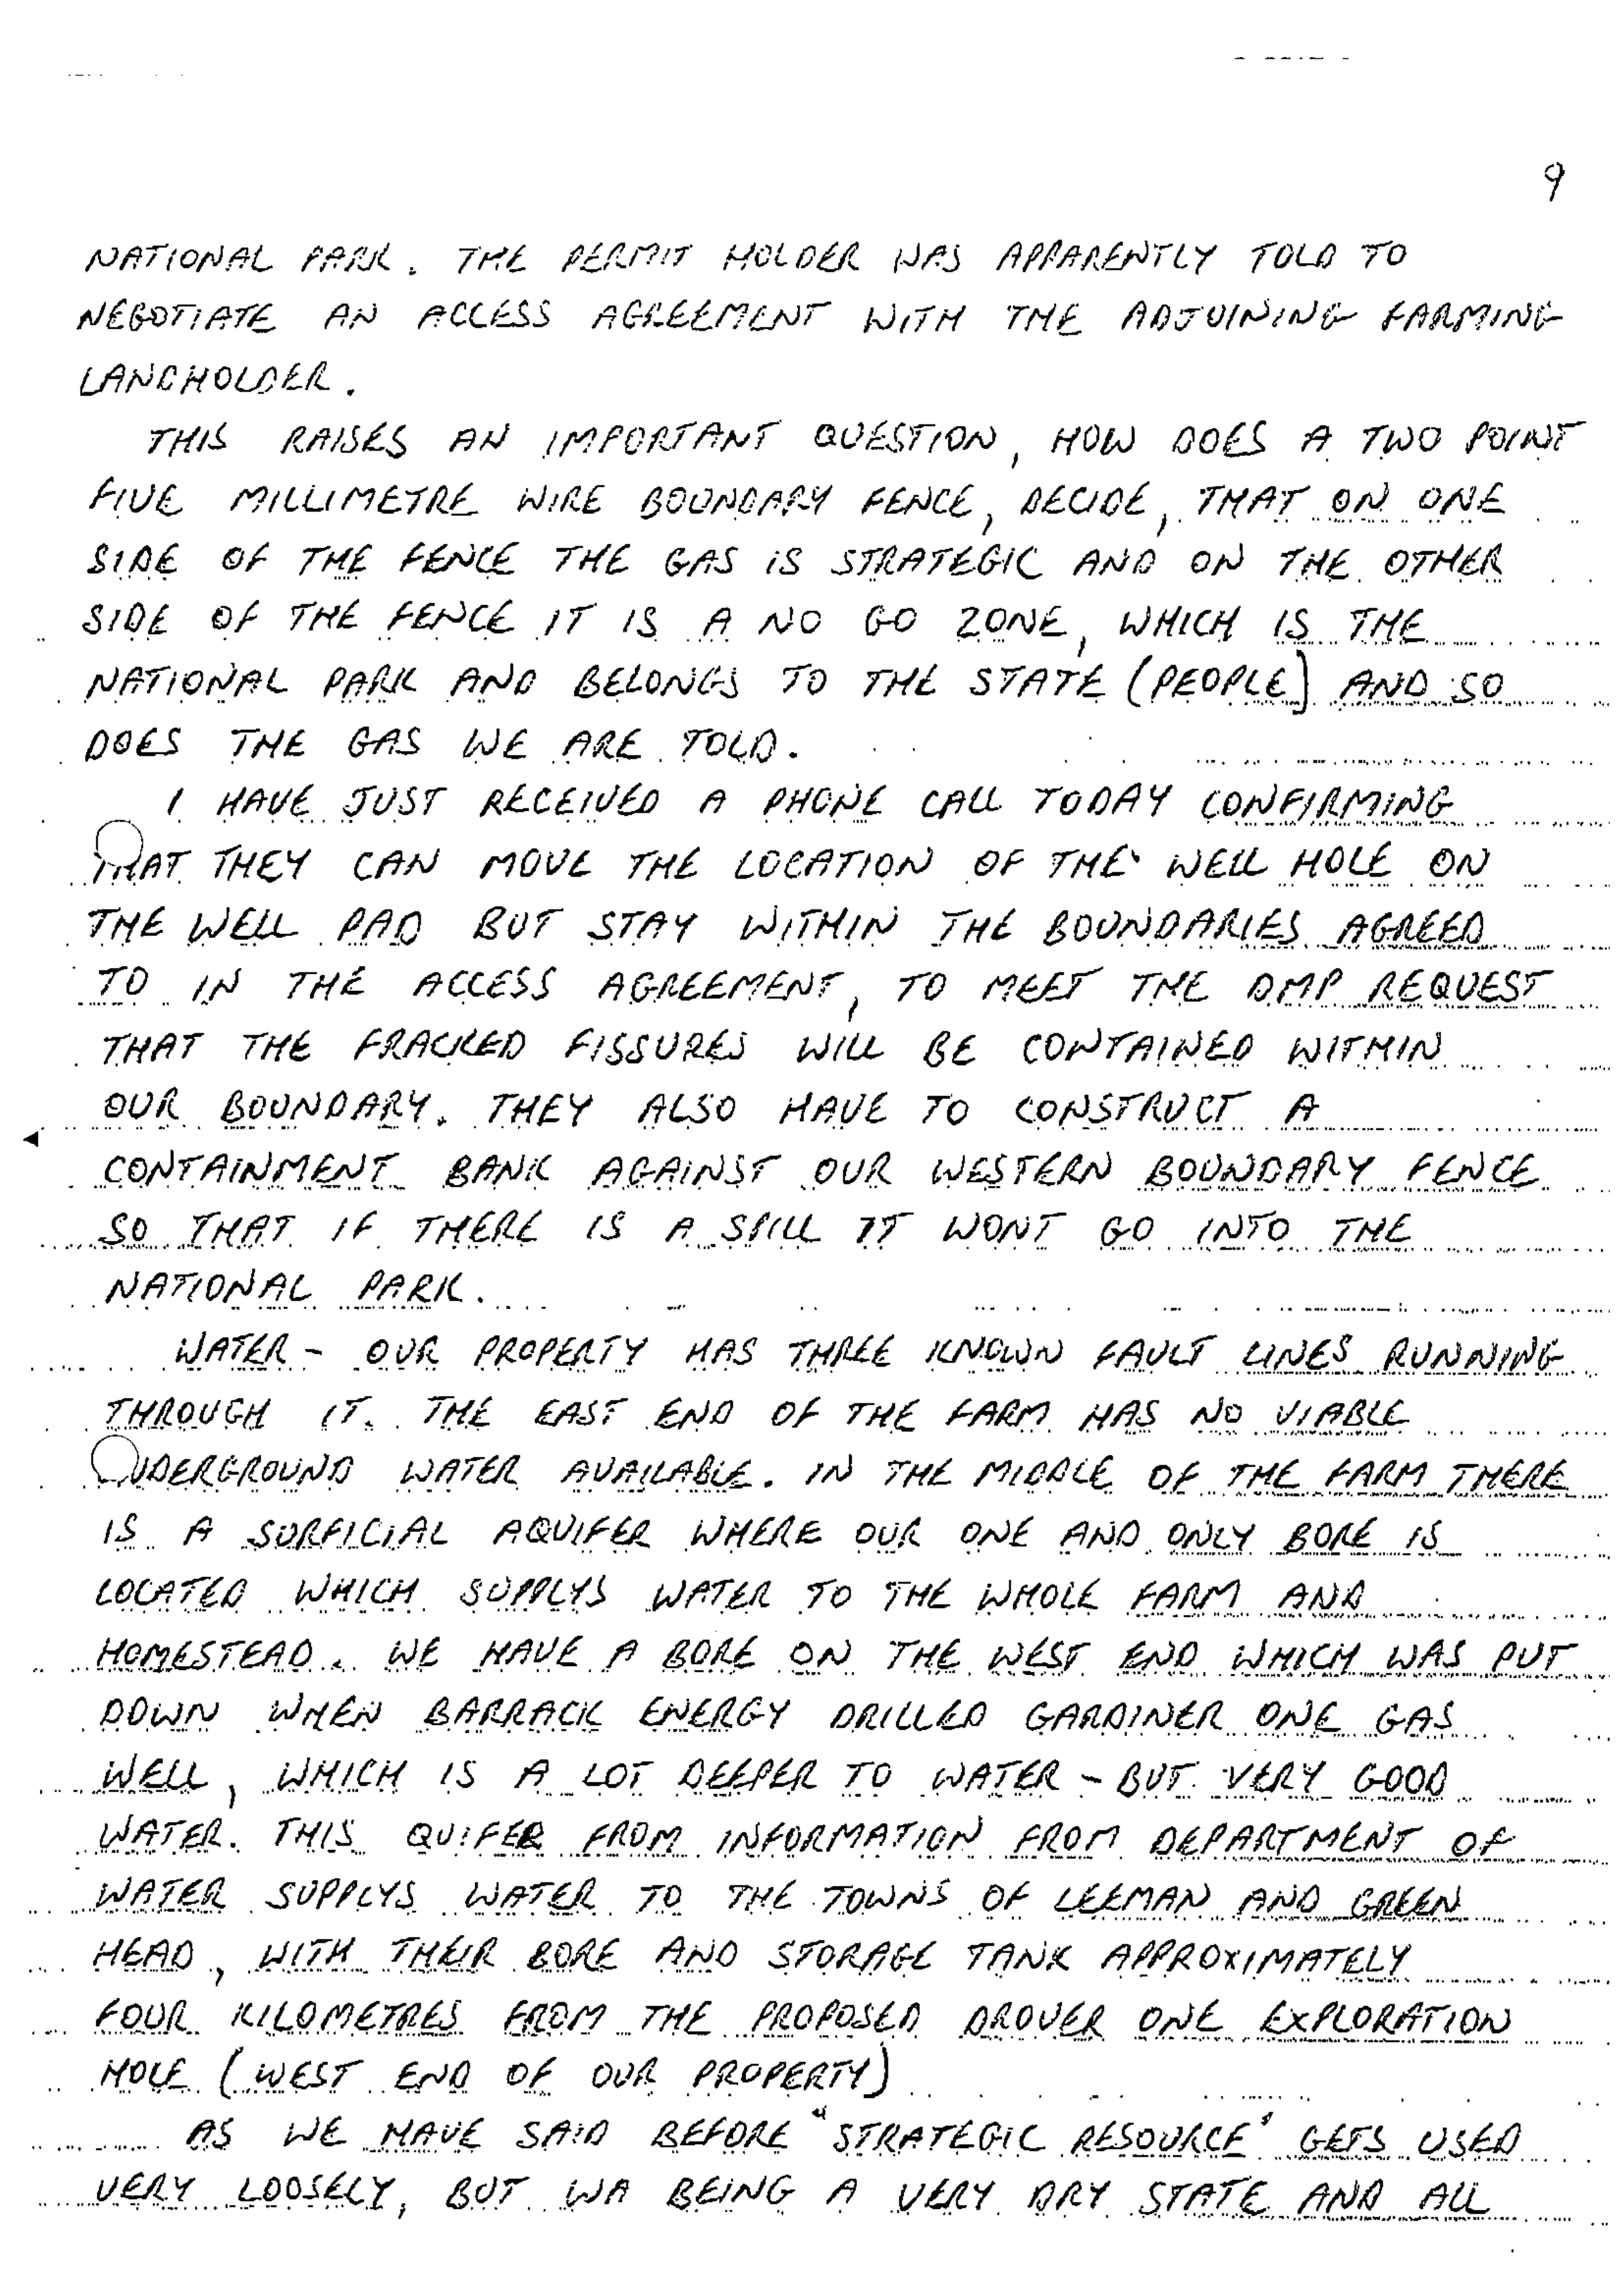 9
NATIONAL PARK. THE PERMIT HOLDER WAS APPARENTLY TOLD TO
NEGOTIATE AN ACCESS AGREEMENT WITH THE ADJOINING FARMING
LANDHOLDER.
THIS RAISES AN IMPORTANT QUESTION, HOW DOES A TWO POINT
FIVE MILLIMETRE WIRE BOUNDARY FENCE, DECIDE, THAT ON ONE
SIDE OF THE FENCE THE GAS IS STRATEGIC AND ON THE OTHER
SIDE OF THE FENCE IT IS A NO GO ZONE, WHICH IS THE
NATIONAL PARK AND BELONGS TO THE STATE (PEOPLE] AND SO
DOES THE GAS WE ARE TOLD.
I HAVE JUST RECEIVED A PHONE CALL TODAY CONFIRMING
THAT THEY CAN MOVE THE LOCATION OF THE WELL HOLE ON
THE WELL PAD BUT STAY WITHIN THE BOUNDARIES AGREED
TO IN THE ACCESS AGREEMENT, TO MEET THE DMP REQUEST
THAT THE FRACKED FISSURES WILL BE CONTAINED WITHIN
OUR BOUNDARY. THEY ALSO HAVE TO CONSTRUCT A
CONTAINMENT BANK AGAINST OUR WESTERN BOUNDARY FENCE
SO THAT IF THERE IS A SPILL IT WONT GO INTO THE
NATIONAL PARK.
WATER - OUR PROPERTY HAS THREE KNOWN FAULT LINES RUNNING
THROUGH IT. THE EAST END OF THE FARM HAS NO VIABLE
UNDERGROUND WATER AVAILABLE. IN THE MIDDLE OF THE FARM THERE
IS A SURFICIAL AQUIFER WHERE OUR ONE AND ONLY BORE IS
LOCATED WHICH SUPPLYS WATER TO THE WHOLE FARM AND
HOMESTEAD. WE HAVE A BORE ON THE WEST END WHICH WAS PUT
DOWN WHEN BARRACK ENERGY DRILLED GARDINER ONE GAS
WELL, WHICH IS A LOT DEEPER TO WATER - BUT VERY GOOD
WATER. THIS QUIFER FROM INFORMATION FROM DEPARTMENT OF
WATER SUPPLYS WATER TO THE TOWNS OF LEEMAN AND GREEN
HEAD, WITH THEIR BORE AND STORAGE TANK APPROXIMATELY
FOUR KILOMETRES FROM THE PROPOSED DROVER ONE EXPLORATION
HOLE (WEST END OF OUR PROPERTY)
AS WE HAVE SAID BEFORE "STRATEGIC RESOURCE" GETS USED
VERY LOOSELY, BUT WA BEING A VERY DRY STATE AND ALL